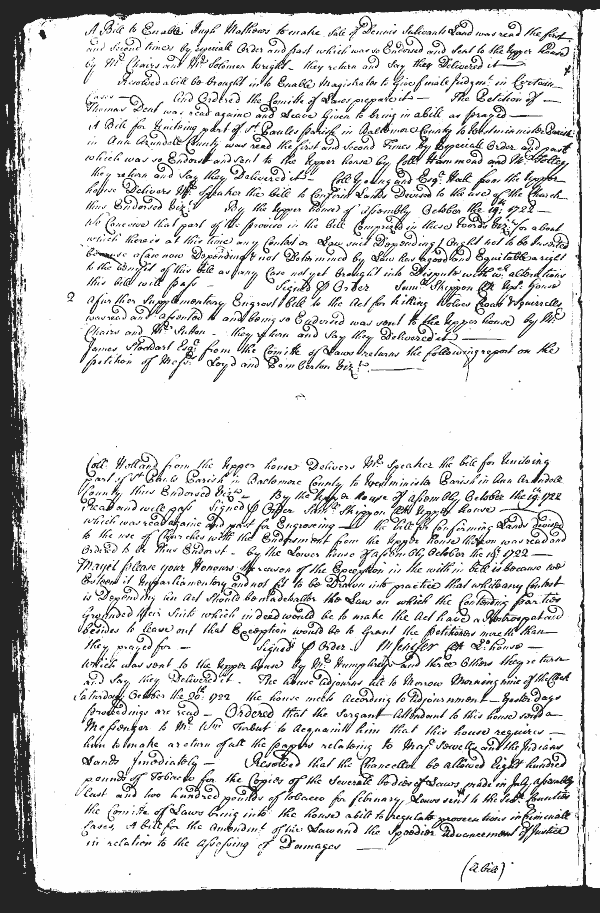 A Bill to Enable Hugh Mathews to make Sale of Dennis Sulivants Land was read the first
and Second times by Especiale Order and past which was so Endorsed and Sent to the Upper house
by Mr Chairs and Mr Solomon Wright - they return and Say they Delivered it
Resolved a bill be brought in to Enable Magistrates to Give finale Judgmt in Certain
Cases - And Ordered the Comitte of Laws prepare it - The Petition of
Thomas Dent was read againe and Leave Given to bring in a bill as prayed
A Bill for Uniteing part of St Paules Parish in Baltemore County to Westminister Parish
in Ann Arundele County was read the first and Second Times by Especiale Order and past
which was so Endorst and sent to the Upper house by Coll Hammond and Mr
they return and Say they Delivered it - Coll Young and Esqr Hall from the Upper
house Delivers Mr Speaker the bill to Confirm Lands Devised to the use of the Church
thus Endorsed Vizt By the Upper house of Assembly October the 19th 1722
We Conceive that part of the Provisoe in the bill Comprised in these Words Vizt for about
which there is at this time any Contest or Law suit Depending) Ought not to be Inserted
because a Case now Depending & not Determined by Law has as good and Equitable a right
to the benefit of this bill as any Case not yet brought into Dispute with wt alterations
this bill will pass Signed p Order Saml Skippon Clk Upr house
A further Supplementary Engrost bill to the Act for killing Wolves Crows & Squerrells
was read and assented to and being so Endorsed was sent to the Upper house by Mr
Chairs and Mr Sutton - they return and Say they Delivered it
James Stoddart Esqr from the Comitte of Laws returns the following report on the
petition of Messrs Loyd and Pemberton Vizt
Coll Holland from the Upper house Delivers Mr Speaker the bill for Uniteing
part of St Paules Parish in Baltemore County to Westminister Parish in Ann Arundele
County thus Endorsed Vizt - By the Upper house of Assembly October the 19th 1722
Read and will pass Signed p Order Saml Skippon Clk Upper house
which was read againe and past for Engrossing - the bill for Confirming Lands Devised
to the use of Churches with the Endorsment from the Upper house thereon was read and
Ordered to be thus Endorst - by the Lower house of Assembly October the 19th 1722
May it please your Honours the reason of the Exception in the with in bill is because we
Esteem it Unparliamentary and not fit to be Drawn into practice that while any Contest
is Depending an Act should be made to alter the Law on which the Contending parties
Grounded their Suits which in deed would be to make the Act have a Retrospect and
besides to leave out that Exception would be to Grant the Petitioners more than
they prayed for - Signed p Order - MJenifer Clk Lo house
which was sent to the Upper house by Mr Humphrys and three Others they return
and Say they Delivered it - The house Adjourns till to Morrow Morning nine of the Clock
Saturday October the 20th 1722 the house meets According to Adjournment - Yesterdays
proceedings are read - Ordered that the Sergant Attendant to this house send a
Messenger to Mr Wm Turbut to Acquaint him that this house requires
him to make a return of all the papers relateing to Maj Sewell and the Indians
Lands Imediately - Resolved that the Chancellor be allowed Eight hundred
pounds of Tobacco for the Copies of the Severale bodies of Laws made in July assembly
Last and two hundred pounds of tobacco for february Laws sent to the Sevl Counties
the Comitte of Laws bring into the house a bill to regulate prosecutions in Criminale
Cases, A bill for the Amendmt of the Law and the Speedier Advancement of Justice
in relation to the Assessing of Damages
(a bill)